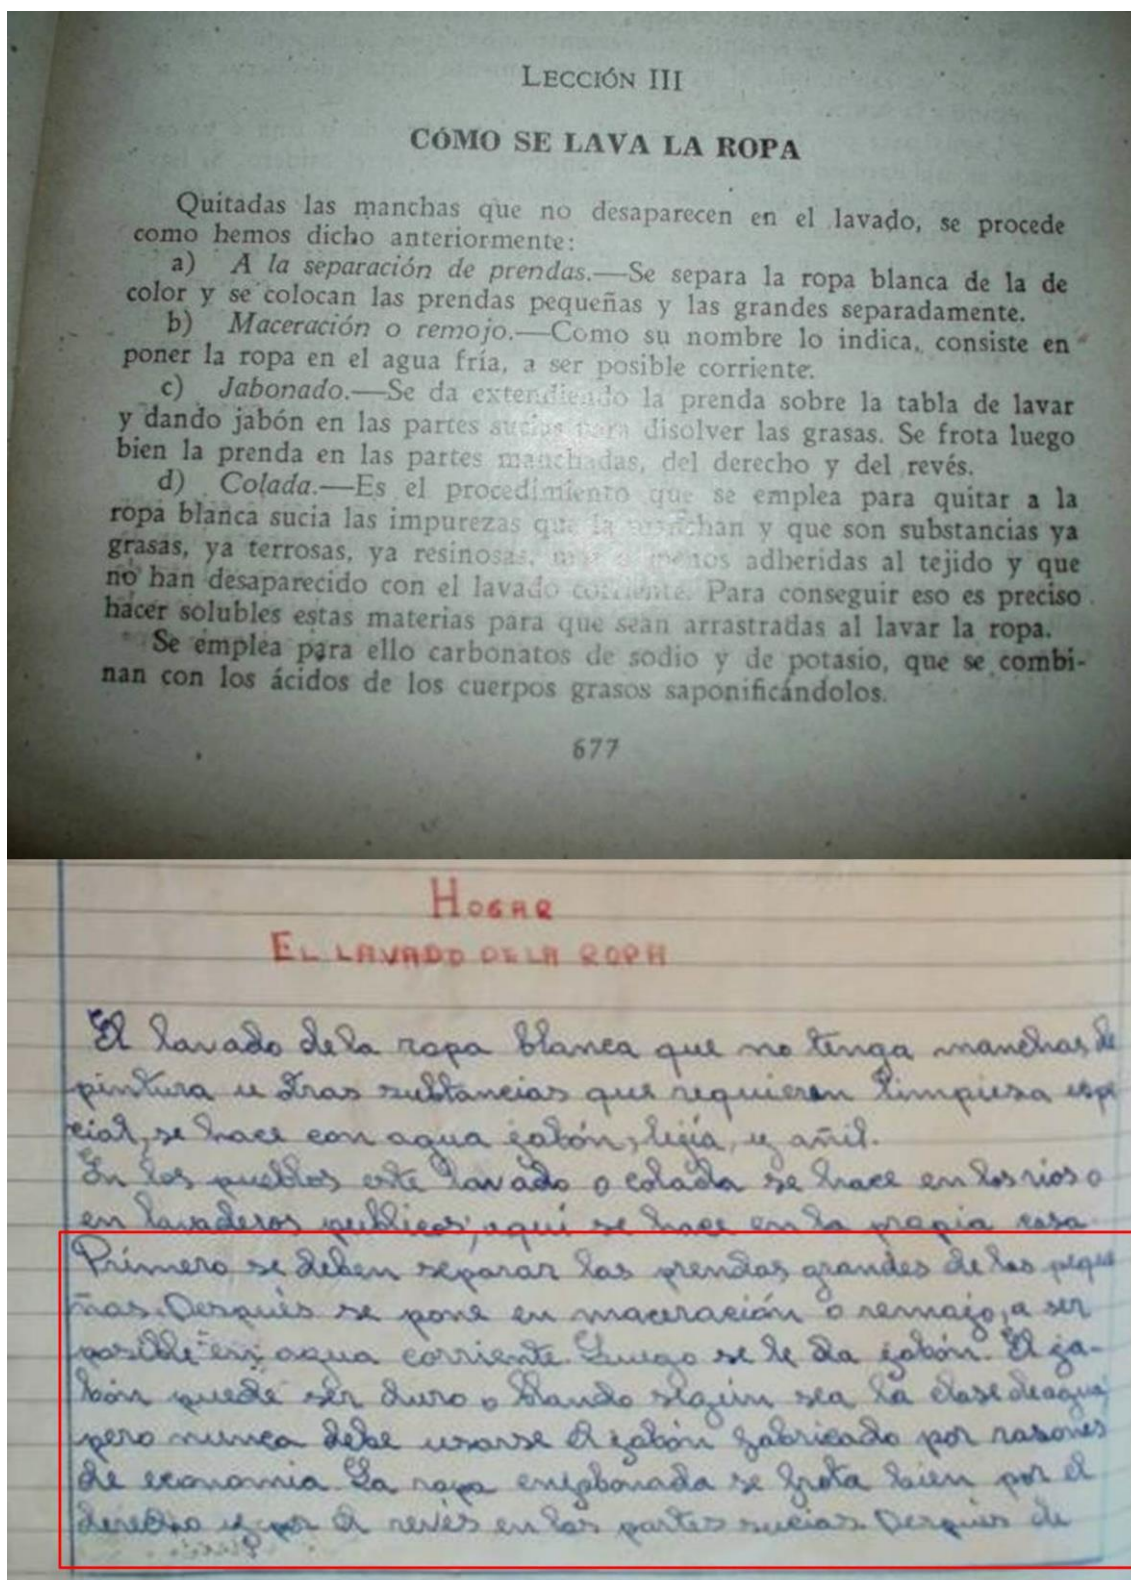 LECCIÓN III
CÓMO SE LAVA LA ROPA
Quitadas las manchas que no desaparecen en el lavado, se procede
como hemos dicho anteriormente:
a) A la separación de prendas.—Se separa la ropa blanca de la de
color y se colocan las prendas pequeñas y las grandes separadamente.
b) Maceración o remojo.—Como su nombre lo indica, consiste en
poner la ropa en el agua fría, a ser posible corriente.
c) Jabonado.—Se da extendiendo la prenda sobre la tabla de lavar
y dando jabón en las partes sucias para disolver las grasas. Se frota luego
bien la prenda en las partes manchadas, del derecho y del revés.
d) Colada.—Es el procedimiento que se emplea para quitar a la
ropa blanca sucia las impurezas que la manchan y que son substancias ya
grasas, ya terrosas, ya resinosas, más o menos adheridas al tejido y que
no han desaparecido con el lavado corriente. Para conseguir eso es preciso
hacer solubles estas materias para que sean arrastradas al lavar la ropa.
Se emplea para ello carbonatos de sodio y de potasio, que se combi-
nan con los ácidos de los cuerpos grasos saponificándolos.
677
HOGAR
EL LAVADO DE LA ROPA
El lavado de la ropa blanca que no tenga manchas de
pintura u otras subtancias que requieren limpiesa espe
cial, se hace con agua jabón, lejía, y añil.
En los pueblos este lavado o colada se hace en los rios o
en lavaderos publicos, aquí se hace en la propia casa
Primero se deben separar las prendas grandes de las peque
ñas. Después se pone en maceración o remojo, a ser
posible en agua corriente. Luego se le da jabón. El ja-
bón puede ser duro o blando según sea la clase de agua,
pero nunca debe usarse el jabón fabricado por rasones
de economia. La ropa enjabonada se frota bien por el
derecho y por el revés en las partes sucias. Después de